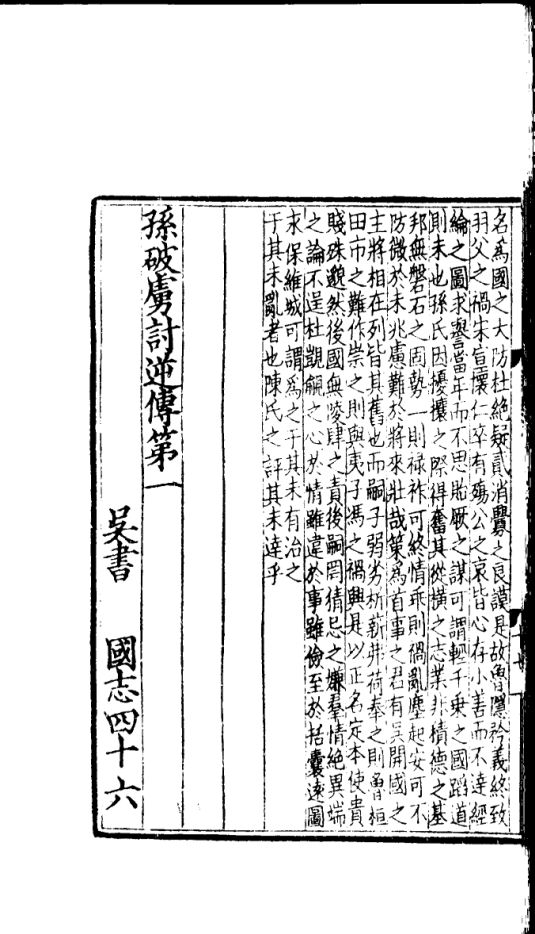 名爲國之大防杜絶疑貳消釁之良謨是故魯隱矜義終致
羽父之禍宋宣懷仁卒有殤公之哀皆心存小善而不達經
綸之圖求譽當年而不思貽厥之謀可謂輕千乗之國蹈道
則未也孫氏因擾攘之際得奮其從橫之志業非積德之基
邦無磐石之固勢一則禄祚可終情乖則禍亂塵起安可不
防微於未兆慮難於將來壯哉策爲首事之君有吳開國之
主將相在列皆其舊也而嗣子弱劣析薪弗荷奉之則魯桓
田巿之難作崇之則與夷子馮之禍興是以正名定本使貴
賤殊邈然後國無陵肆之責後嗣罔猜忌之嫌羣情絶異端
之論不逞杜覬覦之心於情雖違於事雖儉至於括囊遠圖
求保維城可謂爲之于其未有治之
于其未亂者也陳氏之評其未達乎
孫破虜討逆傳第一
吳書 國志四十六